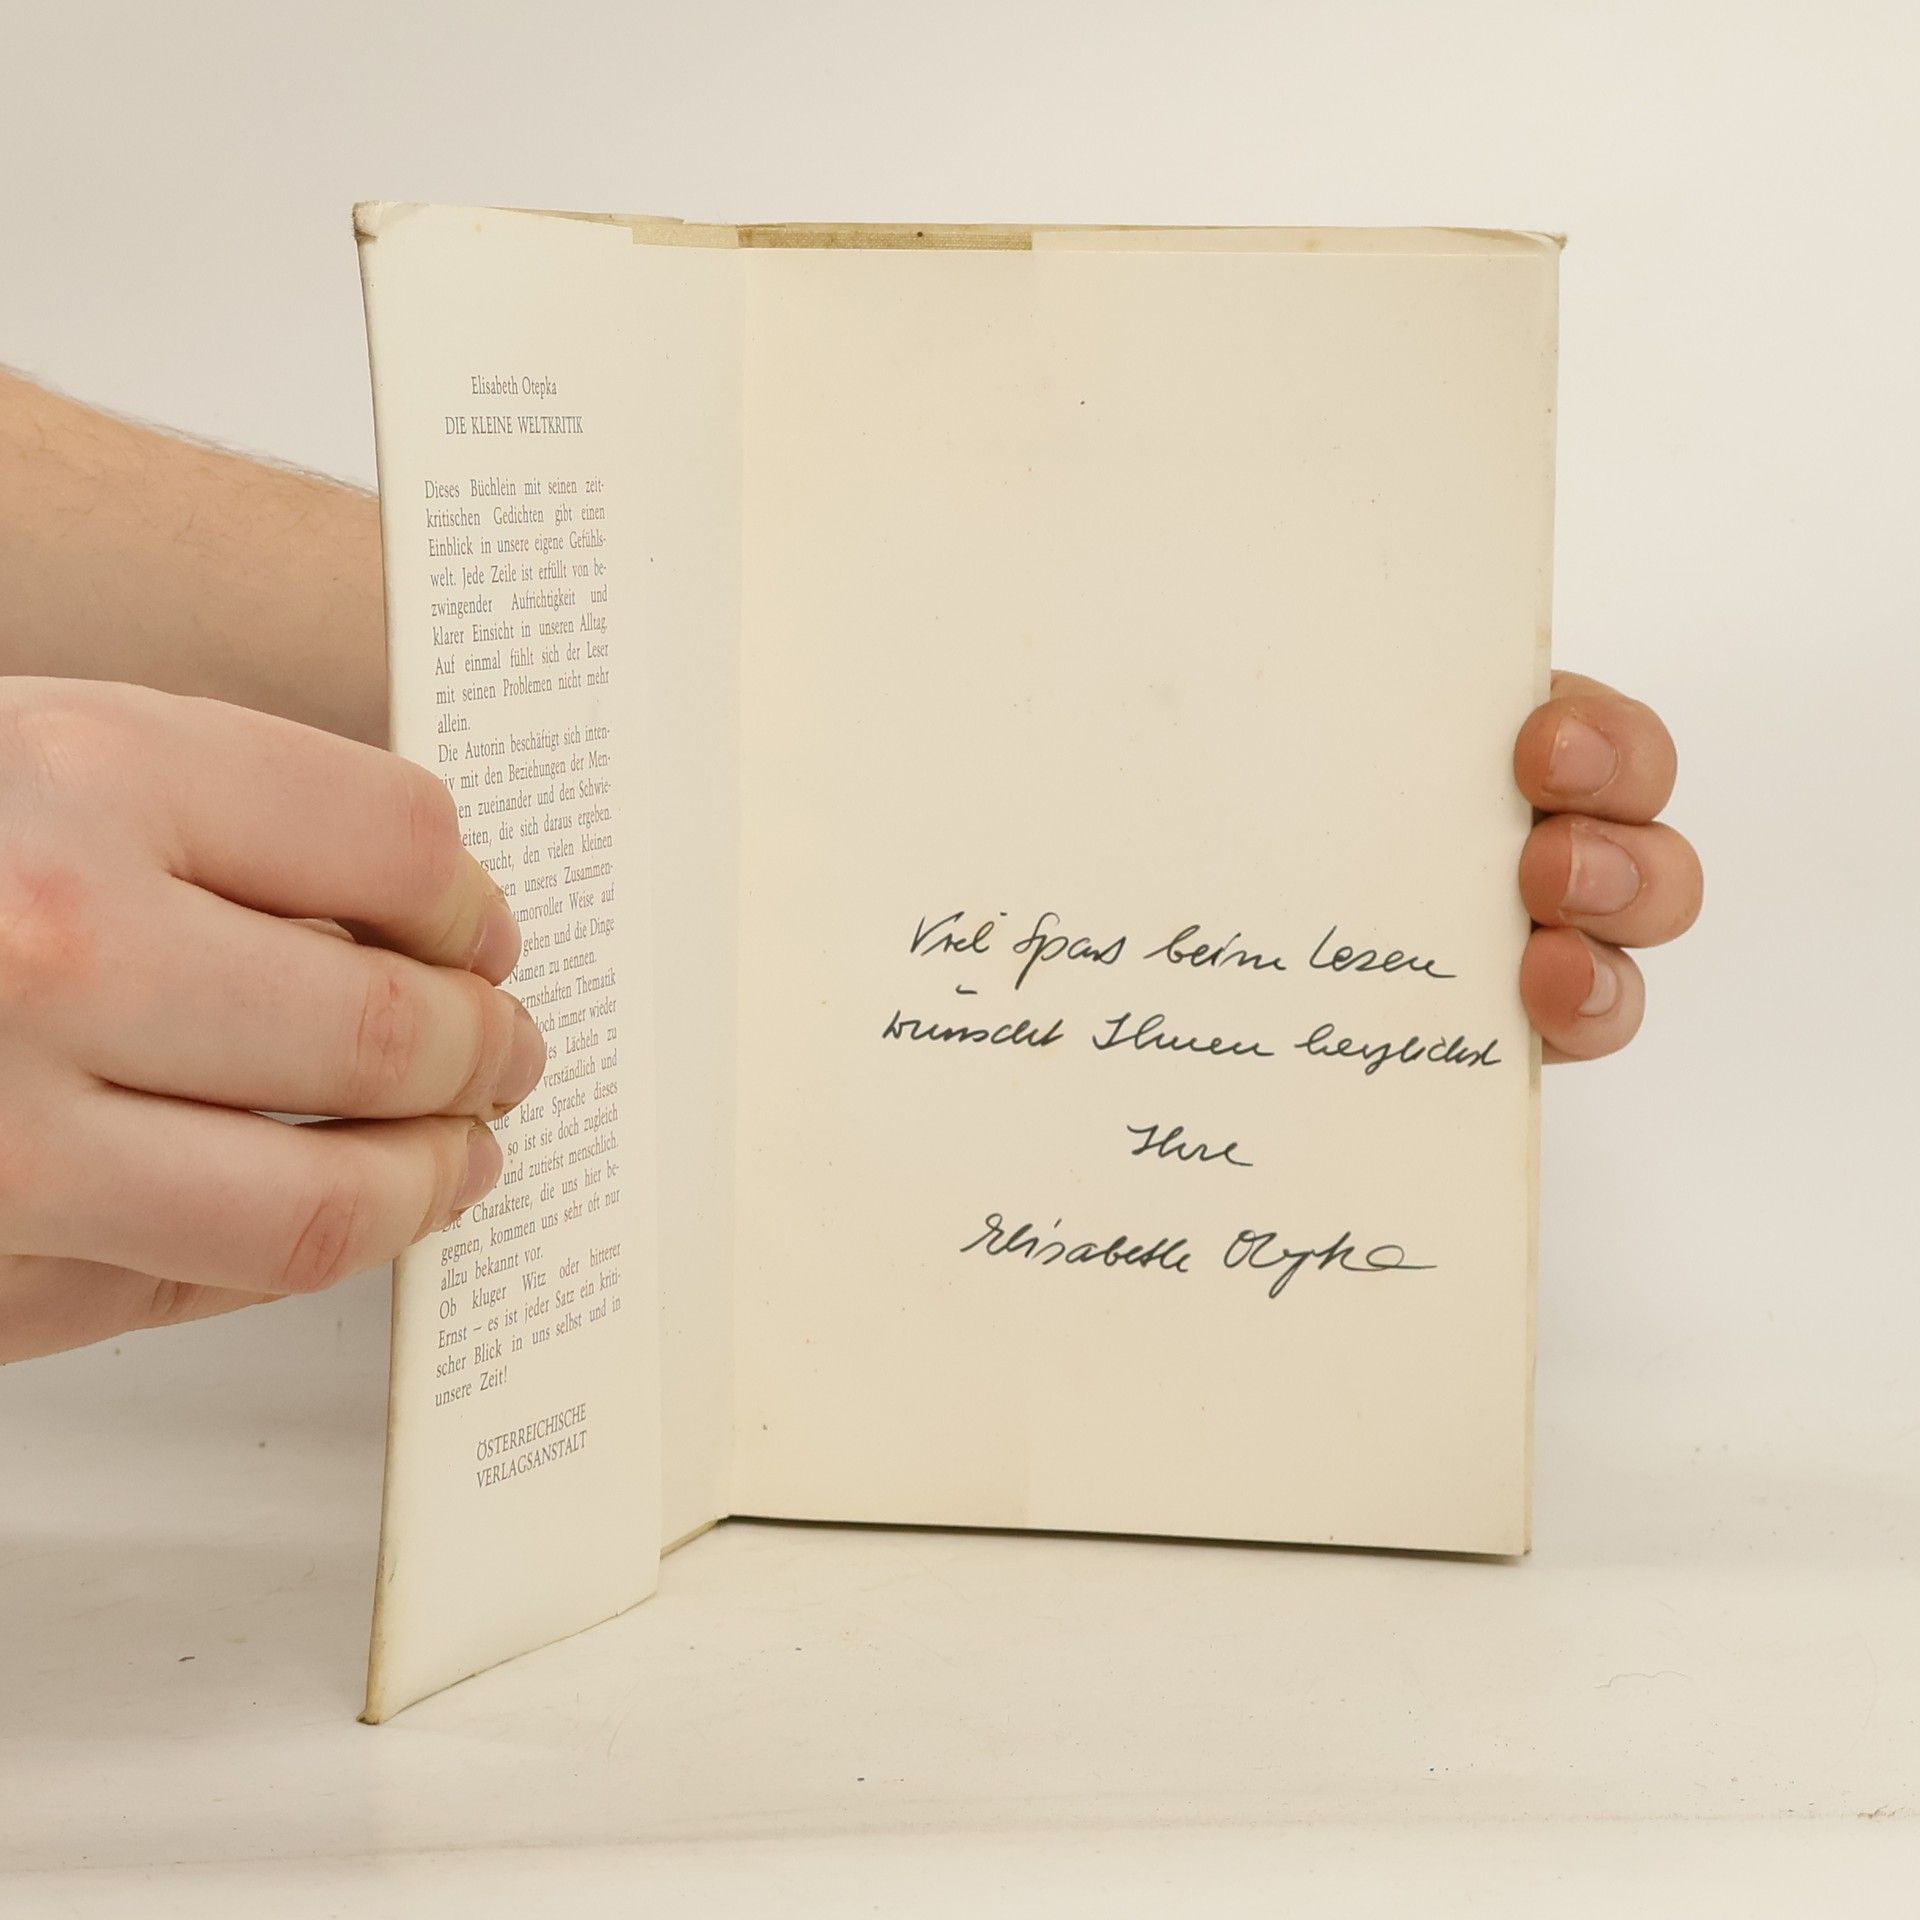 Elisabeth Otepka
DIE KLEINE WELTKRITIK
Dieses Büchlein mit seinen zeit-
kritischen Gedichten gibt einen
Einblick in unsere eigene Gefühls-
welt. Jede Zeile ist erfüllt von be-
zwingender Aufrichtigkeit und
klarer Einsicht in unseren Alltag.
Auf einmal fühlt sich der Leser
mit seinen Problemen nicht mehr
allein.
Die Autorin beschäftigt sich inten-
iv mit den Beziehungen der Men-
en zueinander und den Schwie-
eiten, die sich daraus ergeben.
rsucht, den vielen kleinen
sen unseres Zusammen-
umorvoller Weise auf
gehen und die Dinge
Namen zu nennen.
ernsthaften Thematik
doch immer wieder
les Lächeln zu
verständlich und
die klare Sprache dieses
so ist sie doch zugleich
und zutiefst menschlich.
Die Charaktere, die uns hier be-
gegnen, kommen uns sehr oft nur
allzu bekannt vor.
Ob kluger Witz oder bitterer
Ernst – es ist jeder Satz ein kriti-
scher Blick in uns selbst und in
unsere Zeit!
ÖSTERREICHISCHE
VERLAGSANSTALT
Viel Spass beim Lesen
wünscht Ihnen herzlichst
Ihre
Elisabeth Otepka